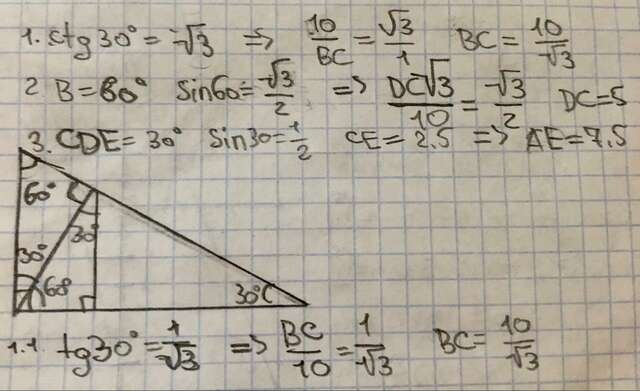 1. ctg30° = √3 => 10/BC = √3/1 BC = 10/√3
2 B = 60° sin60 = √3/2 => DC√3/10 = √3/2 DC = 5
3. CDE = 30° sin30 = 1/2 CE = 2.5 => AE = 7,5
60°
30°
30°
60°
30° C
1.1. tg30° = 1/√3 => BC/10 = 1/√3 BC = 10/√3